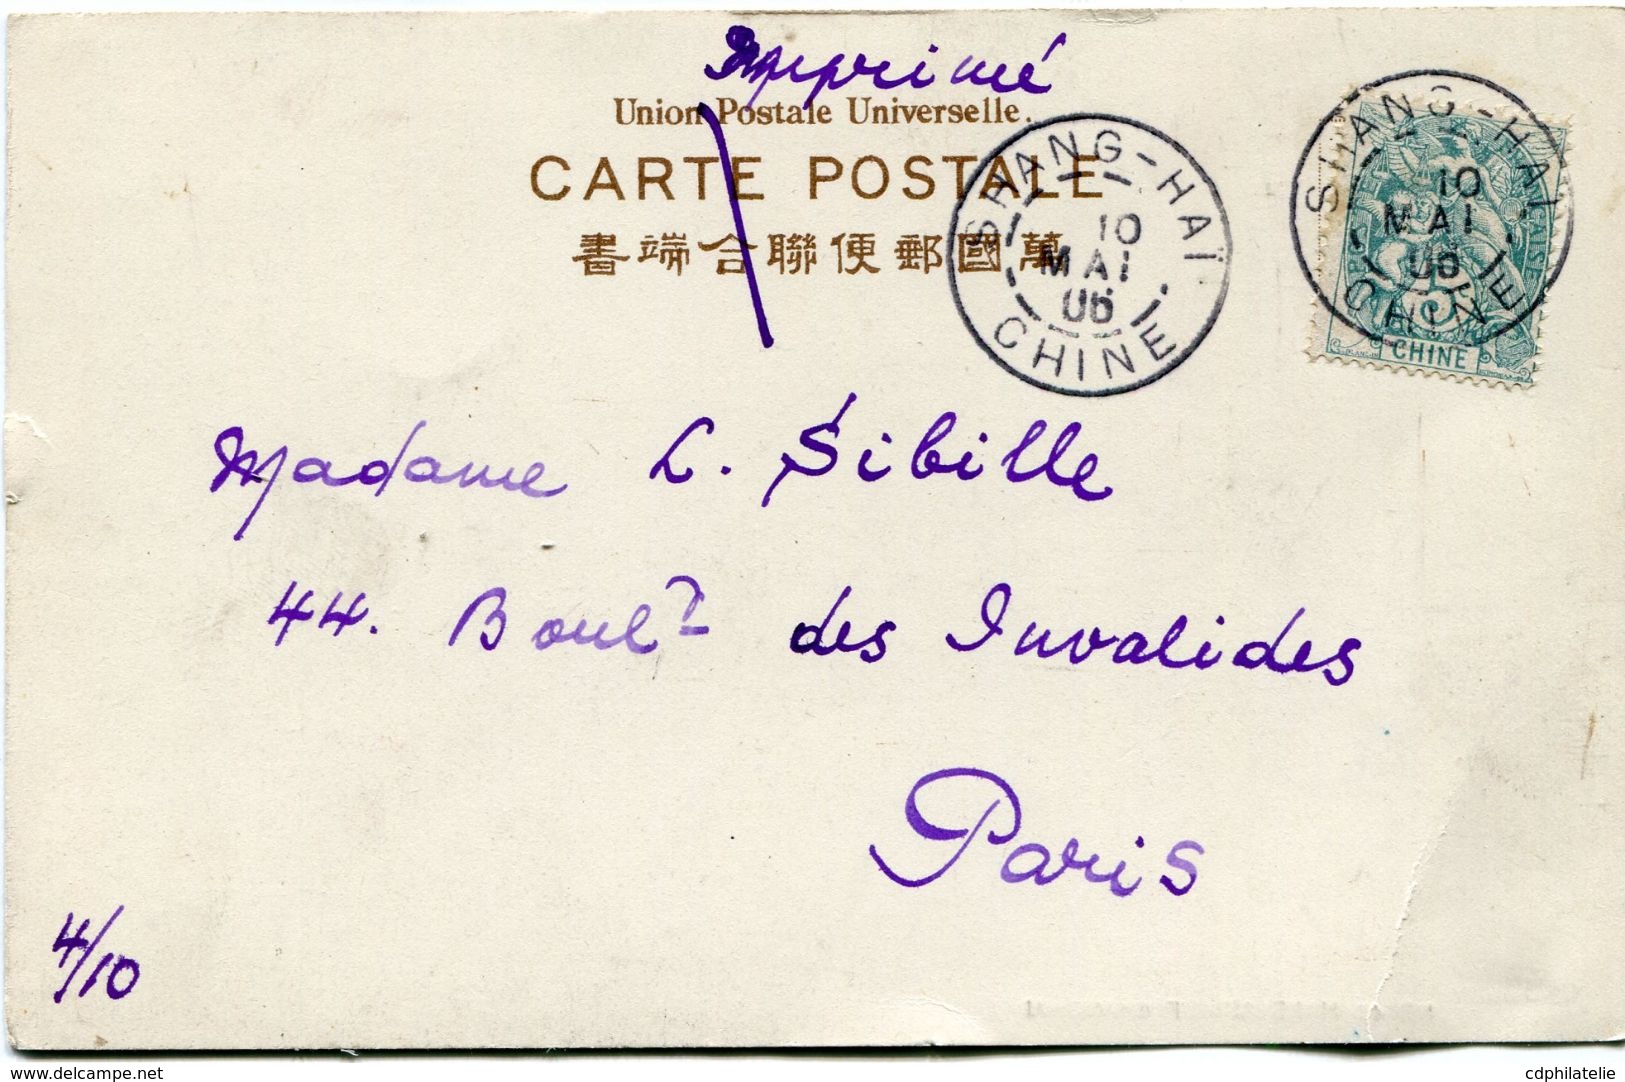 Imprimé
Union Postale Universelle.
CARTE POSTALE
書端合聯便郵國萬
SHANG-HAÏ
10
MAI
06
CHINE
SHANG-HAÏ
10
MAI
06
CHINE
5
CHINE
Madame L. Sibille
44. Boul.d des Invalides
Paris
4/10
www.delcampe.net
cdphilatelie